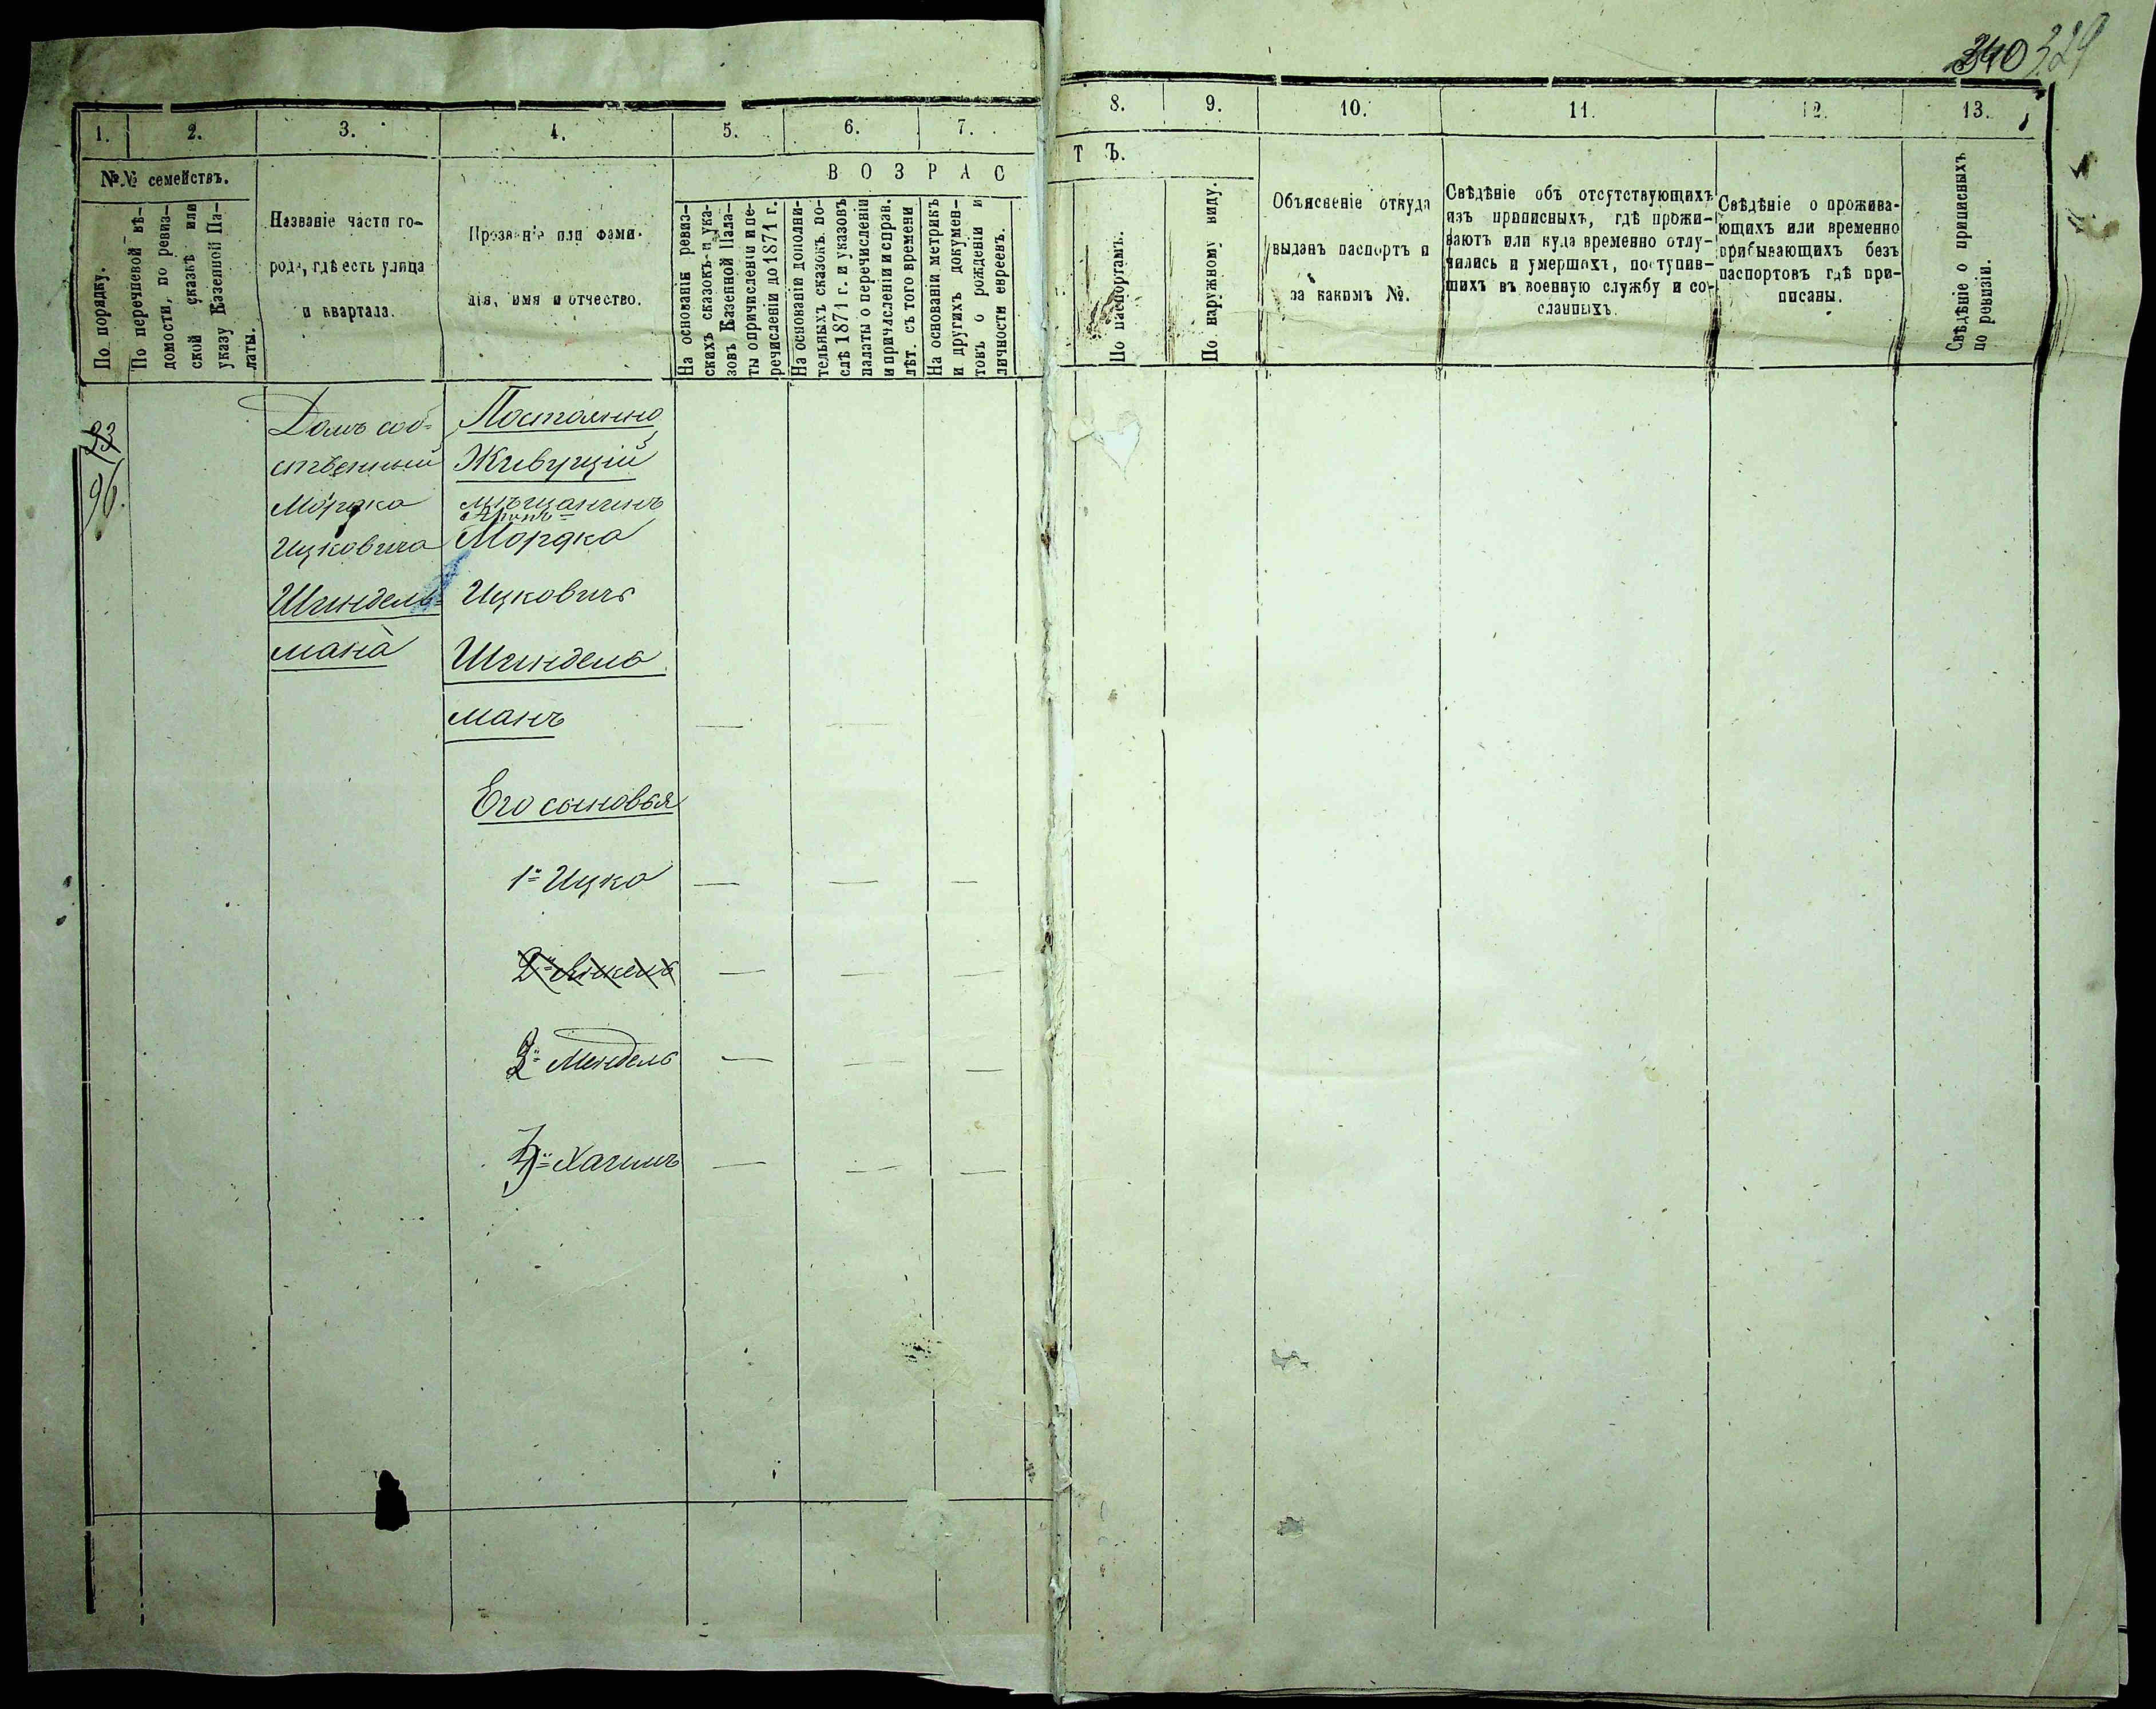 340 329
1. 2. 3. 4. 5. 6. 7. 8. 9. 10. 11. 12. 13.
№№ семействъ.
В О З Р А С Т Ъ.
По порядку.
По перечневой вѣ-
домости, по ревиз-
ской сказкѣ или
указу Казенной Па-
латы.
Названіе части го-
рода, гдѣ есть улица
и квартала.
Прозваніе или фами-
лія, имя и отчество.
На основаніи ревиз-
скихъ сказокъ и ука-
зовъ Казенной Пала-
ты опричисленіи и пе-
речисленіи до 1871 г.
На основаніи дополни-
тельныхъ сказокъ по-
слѣ 1871 г. и указовъ
палаты о перечисленіи
и причисленіи и справ.
лѣт. съ того времени
На основаніи метрикъ
и другихъ докумен-
товъ о рожденіи и
личности евреевъ.
По паспортамъ.
По наружному виду.
Объясненіе откуда
выданъ паспортъ и
за какимъ №.
Свѣдѣніе объ отсутствующихъ
изъ приписныхъ, гдѣ прожи-
ваютъ или куда временно отлу-
чились и умершихъ, поступив-
шихъ въ военную службу и со-
сланныхъ.
Свѣдѣніе о прожива-
ющихъ или временно
прибывающихъ безъ
паспортовъ гдѣ при-
писаны.
Свѣдѣніе о приписныхъ
по ревизіи.
23
96.
Домъ соб-
ственный
Мордка
Ицковича
Шиндель-
мана
Постоянно
Живущій
мѣщанинъ
Мордка
Ицковичъ
Шиндель
манъ
Его сыновья
1й Ицко
2й
Мендель
Хаимъ